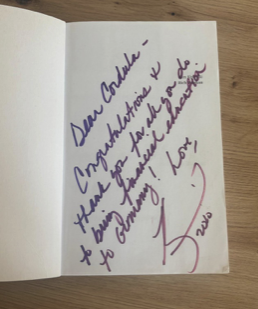 Dear Cordula -
Congratulations &
thank you for all you do
to bring financial education
to Germany! Love,
2010